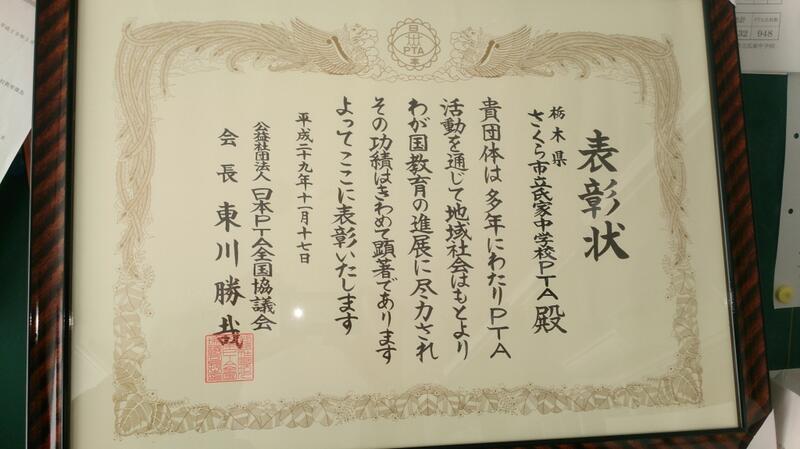 日本
PTA
表彰状
栃木県
さくら市立氏家中学校PTA殿
貴団体は多年にわたりPTA
活動を通じて地域社会はもとより
わが国教育の進展に尽力され
その功績はきわめて顕著であります
よってここに表彰いたします
平成二十九年十一月十七日
公益社団法人 日本PTA全国協議会
会長 東川勝哉
32
948